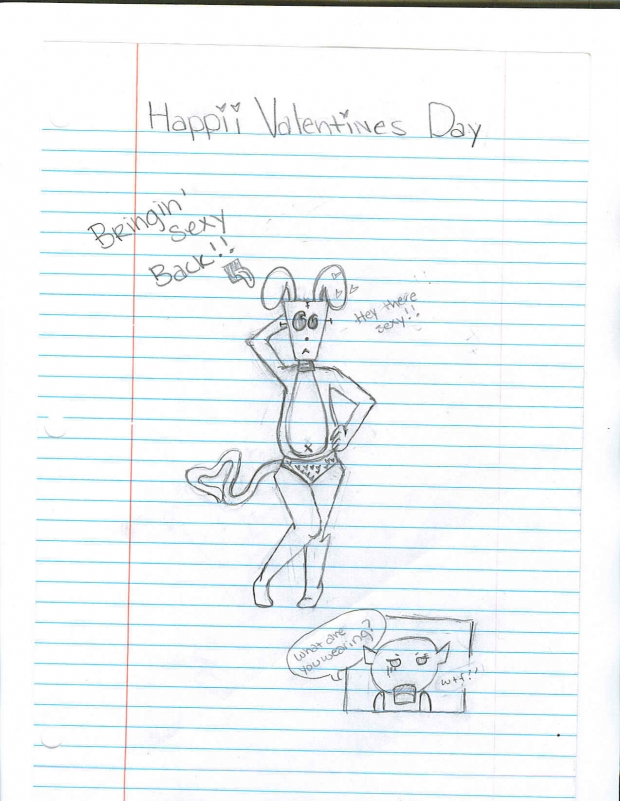 Happii Valentines Day
Bringin'
Sexy
Back!!
Hey there
sexy!!
What are
you wearing?
wtf!!